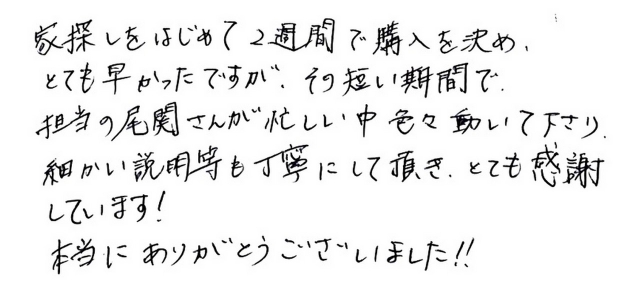 家探しをはじめて2週間で購入を決め、
とても早かったですが、その短い期間で、
担当の尾関さんが忙しい中色々動いて下さり、
細かい説明等も丁寧にして頂き、とても感謝
しています!
本当にありがとうございました!!